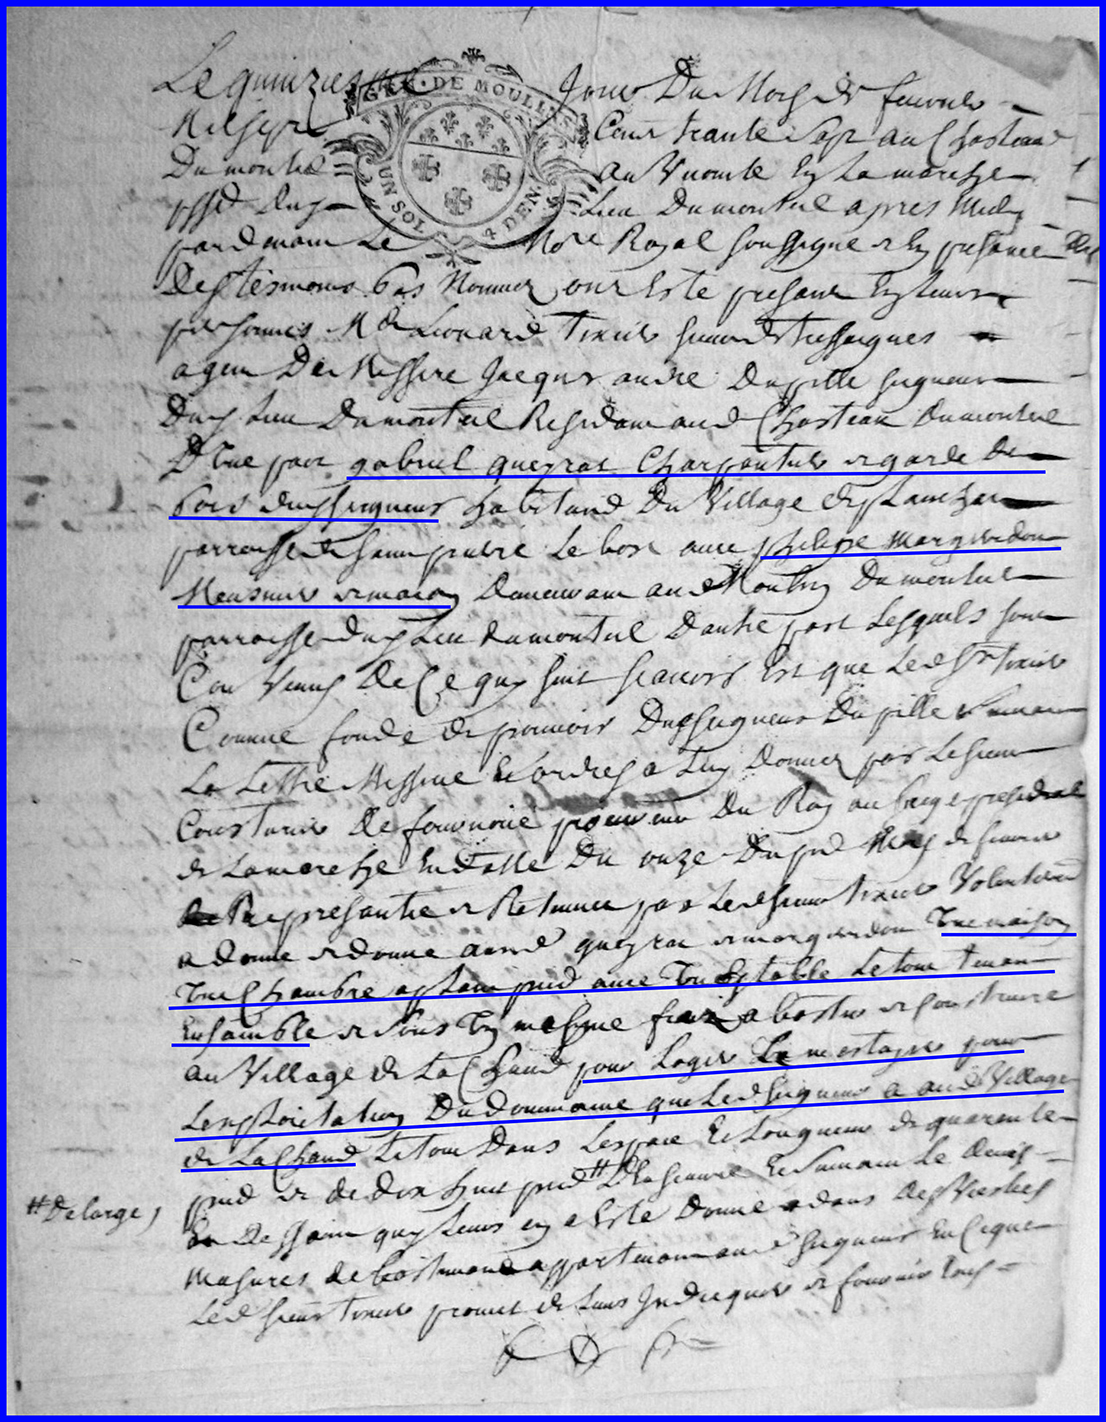 Le quinziesme Jour Du Mois de fevrier
Mil sept Cent trante Sept au Chasteau
Du monteil au Vicomte En La marche
Lieu Du monteil apres Midy
par devant Le No.re Royal soussigne et En presance Des
tesmoins bas Nommes ont Este presant En leurs
personnes M.e Leonard tixier sieur de
agent De Messire Jacques andre Dupille seigneur
Dud. Lieu Du monteil Residant aud. Chasteau Du monteil
D'Une part gabriel queyrat Charpentier et garde de
bois dud. seigneur habitand Du Village de planchat
parroisse de saint pierre Le bost avec philipe margueridon
Meusnier et maçon Demeurant aud. Moulin Du monteil
parroisse dud. Lieu du monteil D'autre part Lesquels sont
Convenus De Ce quy suit scavoir Est que Led. Sr tixier
Comme fondé de pouvoir Dud. seigneur Dupille suivant
La Lettre Missive Et ordres a Luy Donnes par Le sieur
Couturier De fournoüe procureur Du Roy au siege presidial
de La marche En datte Du onze Du pnt Mois de fevrier
Representée et Retenue par Led. sieur tixier Volontairement
a donne et donne ausd. queyrat et margueridon Une maison
Une Chambre a plain pied avec Une Estable Le tout tenant
Ensamble et Sous Un mesme a bastir et Construire
au Village de La Chaud pour Loger Le mestayer pour
L'exploitation Du domaine que Led. seigneur a aud. Village
de La Chaud Le tout Dans L'espace Et Longueur de quarante
pied et de dix huit pied # D'Et Suivant Le devis
Et Dessain quy Leurs en a Este Donne et dans Des Vieslies
Masures de bastiment appartenant aud. seigneur En Ce que
Led. sieur tixier promet de Leurs Indiquer et fournir tous
# De Large
GEN. DE MOULINS
UN SOL 4 DEN.